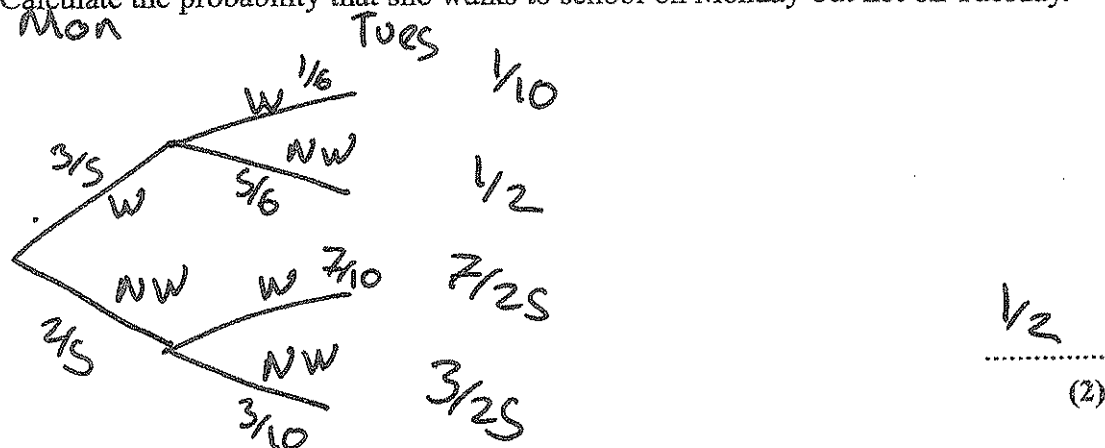 Calculate the probability that she walks to school on Monday but not on Tuesday.
Mon Tues
W 1/6 1/10
3/5 W
NW 5/6 1/2
NW 2/5
W 7/10 7/25
NW 3/10 3/25
1/2
(2)